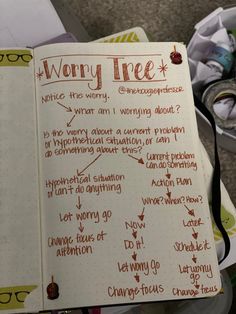 Worry Tree
Notice the worry.
What am I worrying about?
Is the worry about a current problem
or hypothetical situation, or can I
do something about this?
Current problem
can do something
Hypothetical situation
or can't do anything
Action Plan
What? When? How?
Let worry go
Now
Later
Change focus of
attention
Do it!
Schedule it
Let worry go
Let worry
go
Change focus
Change focus